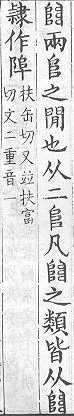 𨺅兩𨸏之閒也从二𨸏凡𨺅之類皆从𨺅
隷作
扶缶切又竝扶富
切文二重音一